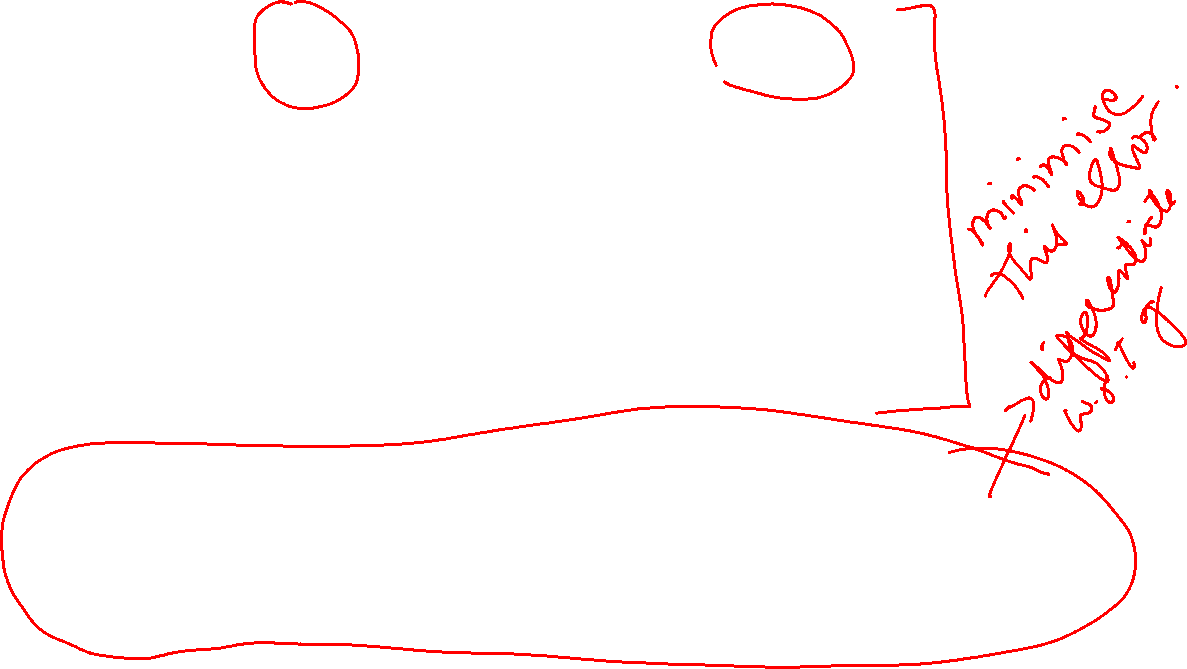 minimise
This error.
differentiate
w.r.t g